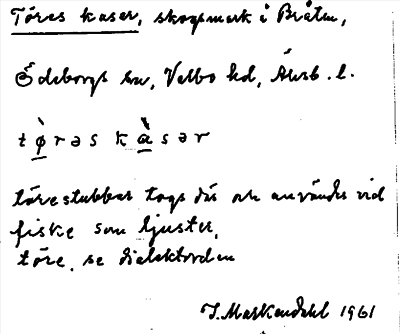 Töres kaser, skogsmark i Bråten,
Ödeborgs sn, Valbo hd, Älvsb. l.
tø̀rəs kàsər
törestubbar togs där och användes vid
fiske som ljuster.
töre. se dialektorden
J. Markendahl 1961